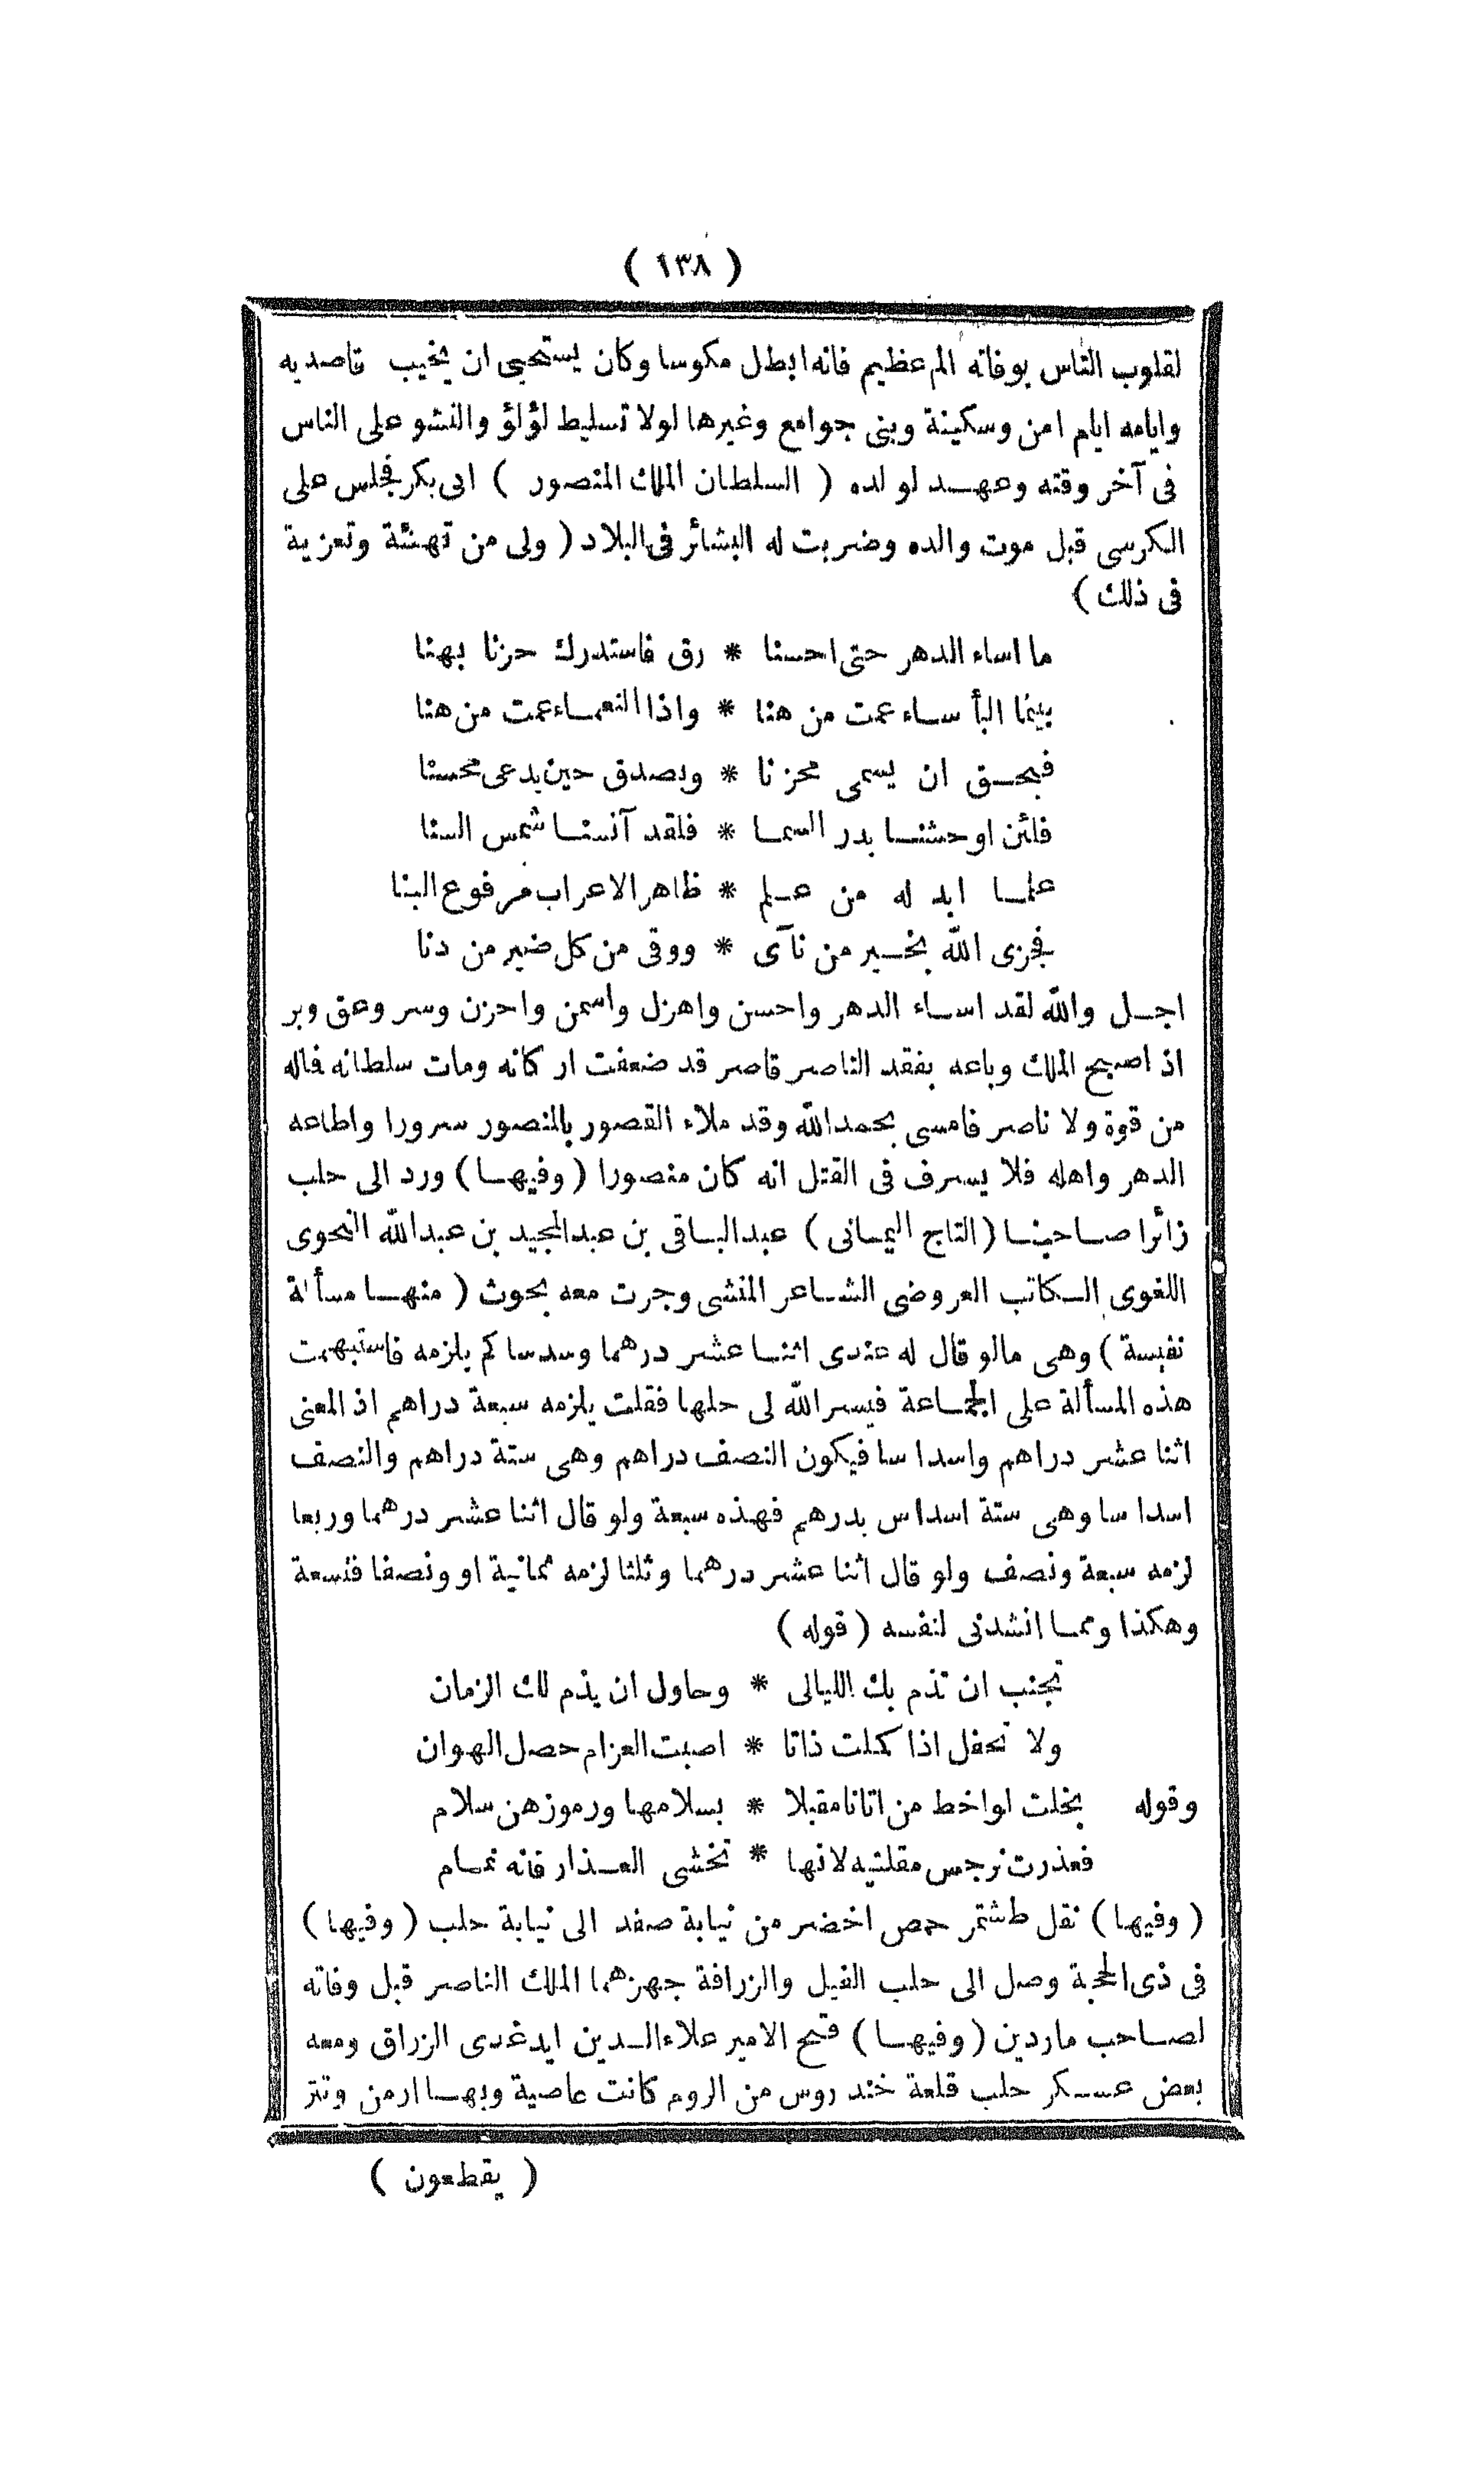 ( ١٣٨ )
لقلوب الناس بوفاته الم عظيم فانه ابطل مكوسا وكان يستحيى ان يخيب قاصديه
وايامه ايام امن وسكينة وبنى جوامع وغيرها لولا تسليط لؤلؤ والنشو على الناس
فى آخر وقته وعهد لولده ( السلطان الملك المنصور ) ابى بكر فجلس على
الكرسى قبل موت والده وضربت له البشائر فى البلاد ( ولى من تهنئة وتعزية
فى ذلك )
ما اساء الدهر حتى احسنا * رق فاستدرك حزنا بهنا
بينما البأساء عمت من هنا * واذا النعماء عمت من هنا
فبحق ان يسمى محزنا * وبصدق حين يدعى محسنا
فلئن اوحشنا بدر السما * فلقد آنسنا شمس السنا
علما ابد له من علم * ظاهر الاعراب مرفوع البنا
فجزى الله بخير من نآى * ووقى من كل ضير من دنا
اجل والله لقد اساء الدهر واحسن واهزل واسمن واحزن وسر وعق وبر
اذ اصبح الملك وباعه بفقد الناصر قاصر قد ضعفت اركانه ومات سلطانه فاله
من قوة ولا ناصر فامسى بحمد الله وقد ملاء القصور بالمنصور سرورا واطاعه
الدهر واهله فلا يسرف فى القتل انه كان منصورا ( وفيها ) ورد الى حلب
زائرا صاحبنا ( التاج اليمانى ) عبد الباقى بن عبد المجيد بن عبد الله النحوى
اللغوى الكاتب العروضى الشاعر المنشى وجرت معه بحوث ( منها مسألة
نفيسة ) وهى مالو قال له عندى اثنا عشر درهما وسدسا كم يلزمه فاستبهمت
هذه المسألة على الجماعة فيسر الله لى حلها فقلت يلزمه سبعة دراهم اذ المعنى
اثنا عشر دراهم واسداسا فيكون النصف دراهم وهى ستة دراهم والنصف
اسداسا وهى ستة اسداس بدرهم فهذه سبعة ولو قال اثنا عشر درهما وربعا
لزمه سبعة ونصف ولو قال اثنا عشر درهما وثلثا لزمه ثمانية او ونصفا فتسعة
وهكذا ومما انشدنى لنفسه ( قوله )
تجنب ان تذم بك الليالى * وحاول ان يذم لك الزمان
ولا تحفل اذا كملت ذاتا * اصبت العزام حصل الهوان
وقوله بخلت لواحظ من اتانا مقبلا * بسلامها ورموزهن سلام
فعذرت نرجس مقلتيه لانها * تخشى العذار فانه نمام
( وفيها ) نقل طشتمر حمص اخضر من نيابة صفد الى نيابة حلب ( وفيها )
فى ذى الحجة وصل الى حلب الفيل والزرافة جهزهما الملك الناصر قبل وفاته
لصاحب ماردين ( وفيها ) فتح الامير علاء الدين ايدغدى الزراق ومعه
بعض عسكر حلب قلعة خندروس من الروم كانت عاصية وبها ارمن وتتر
( يقطعون )